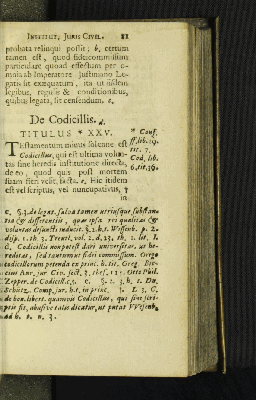 INSTITUT. JURIS CIVIL. 81
probata relinqui possit; b. certum
tamen est, quod fideicommissum
particulare quoad effectum per o-
mnia ab Imperatore Justiniano Le-
gatis sit exæquatum, ita ut iisdem
legibus, regulis & conditionibus,
quibus legata, sit censendum. c.
De Codicillis. d.
TITULUS * XXV.
* Conf.
ff. lib. 29.
tit. 7.
Cod. lib.
6. tit. 36.
Testamentum minus solenne est
Codicillus, qui est ultima volun-
tas sine heredis institutione directa
de eo, quod quis post mortem
suam fieri velit, facta. e. Hic itidem
est vel scriptus, vel nuncupativus, †
in
c. §. 3. de legat. salva tamen utriusque substan-
tia & differentiis, quæ ipsa rei qualitas &
voluntas disjuncti inducit. §. 2. h. t. Wesenb. p. 2.
disp. 1. th. 3. Treutl. vol. 2. d. 13. th. 2. lit.
d. Codicillis non potest dari universitas, ut he-
reditas, sed tantum fidei commissum. Origo
codicillorum petenda ex princ. h. tit. Greg.
Jur. Civ. sect. 2. thes. Otto Phil.
Zepper. de Codicill. c. 5. e. §. 2. 3. h. t. Dn.
Schütz. Comp. jur. h. t. in princ. L. 3. C.
de bon. libert. quamvis Codicillus, qui sine scri-
ptis fit, abusive talis dicatur, ut putat VVesenb.
ad h. t. n. 3.